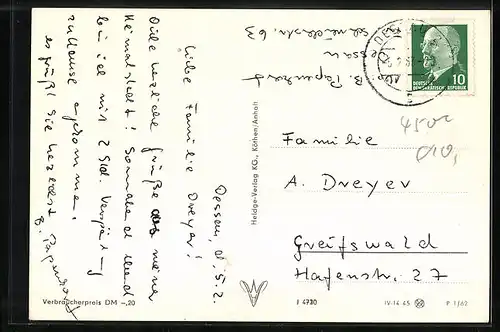 Dessau, d. 5.2.
Liebe Familie Dreyer!
Viele herzliche Grüße aus meiner
Heimatstadt! Sonnabend und
bin ich mit 2 Std. Verspätung
zuhause angekommen.
es grüßt Sie herzlichst
B. Papendorf
Abs. B. Papendorf
Dessau
str. 63
DESSAU
DEUTSCHE
DEMOKRATISCHE REPUBLIK
10
4500
010,
Familie
A. Dreyer
Greifswald
Hafenstr. 27
Heldge-Verlag KG., Köthen/Anhalt
Verbraucherpreis DM -,20
I 4730
IV-14-45
P 1/62